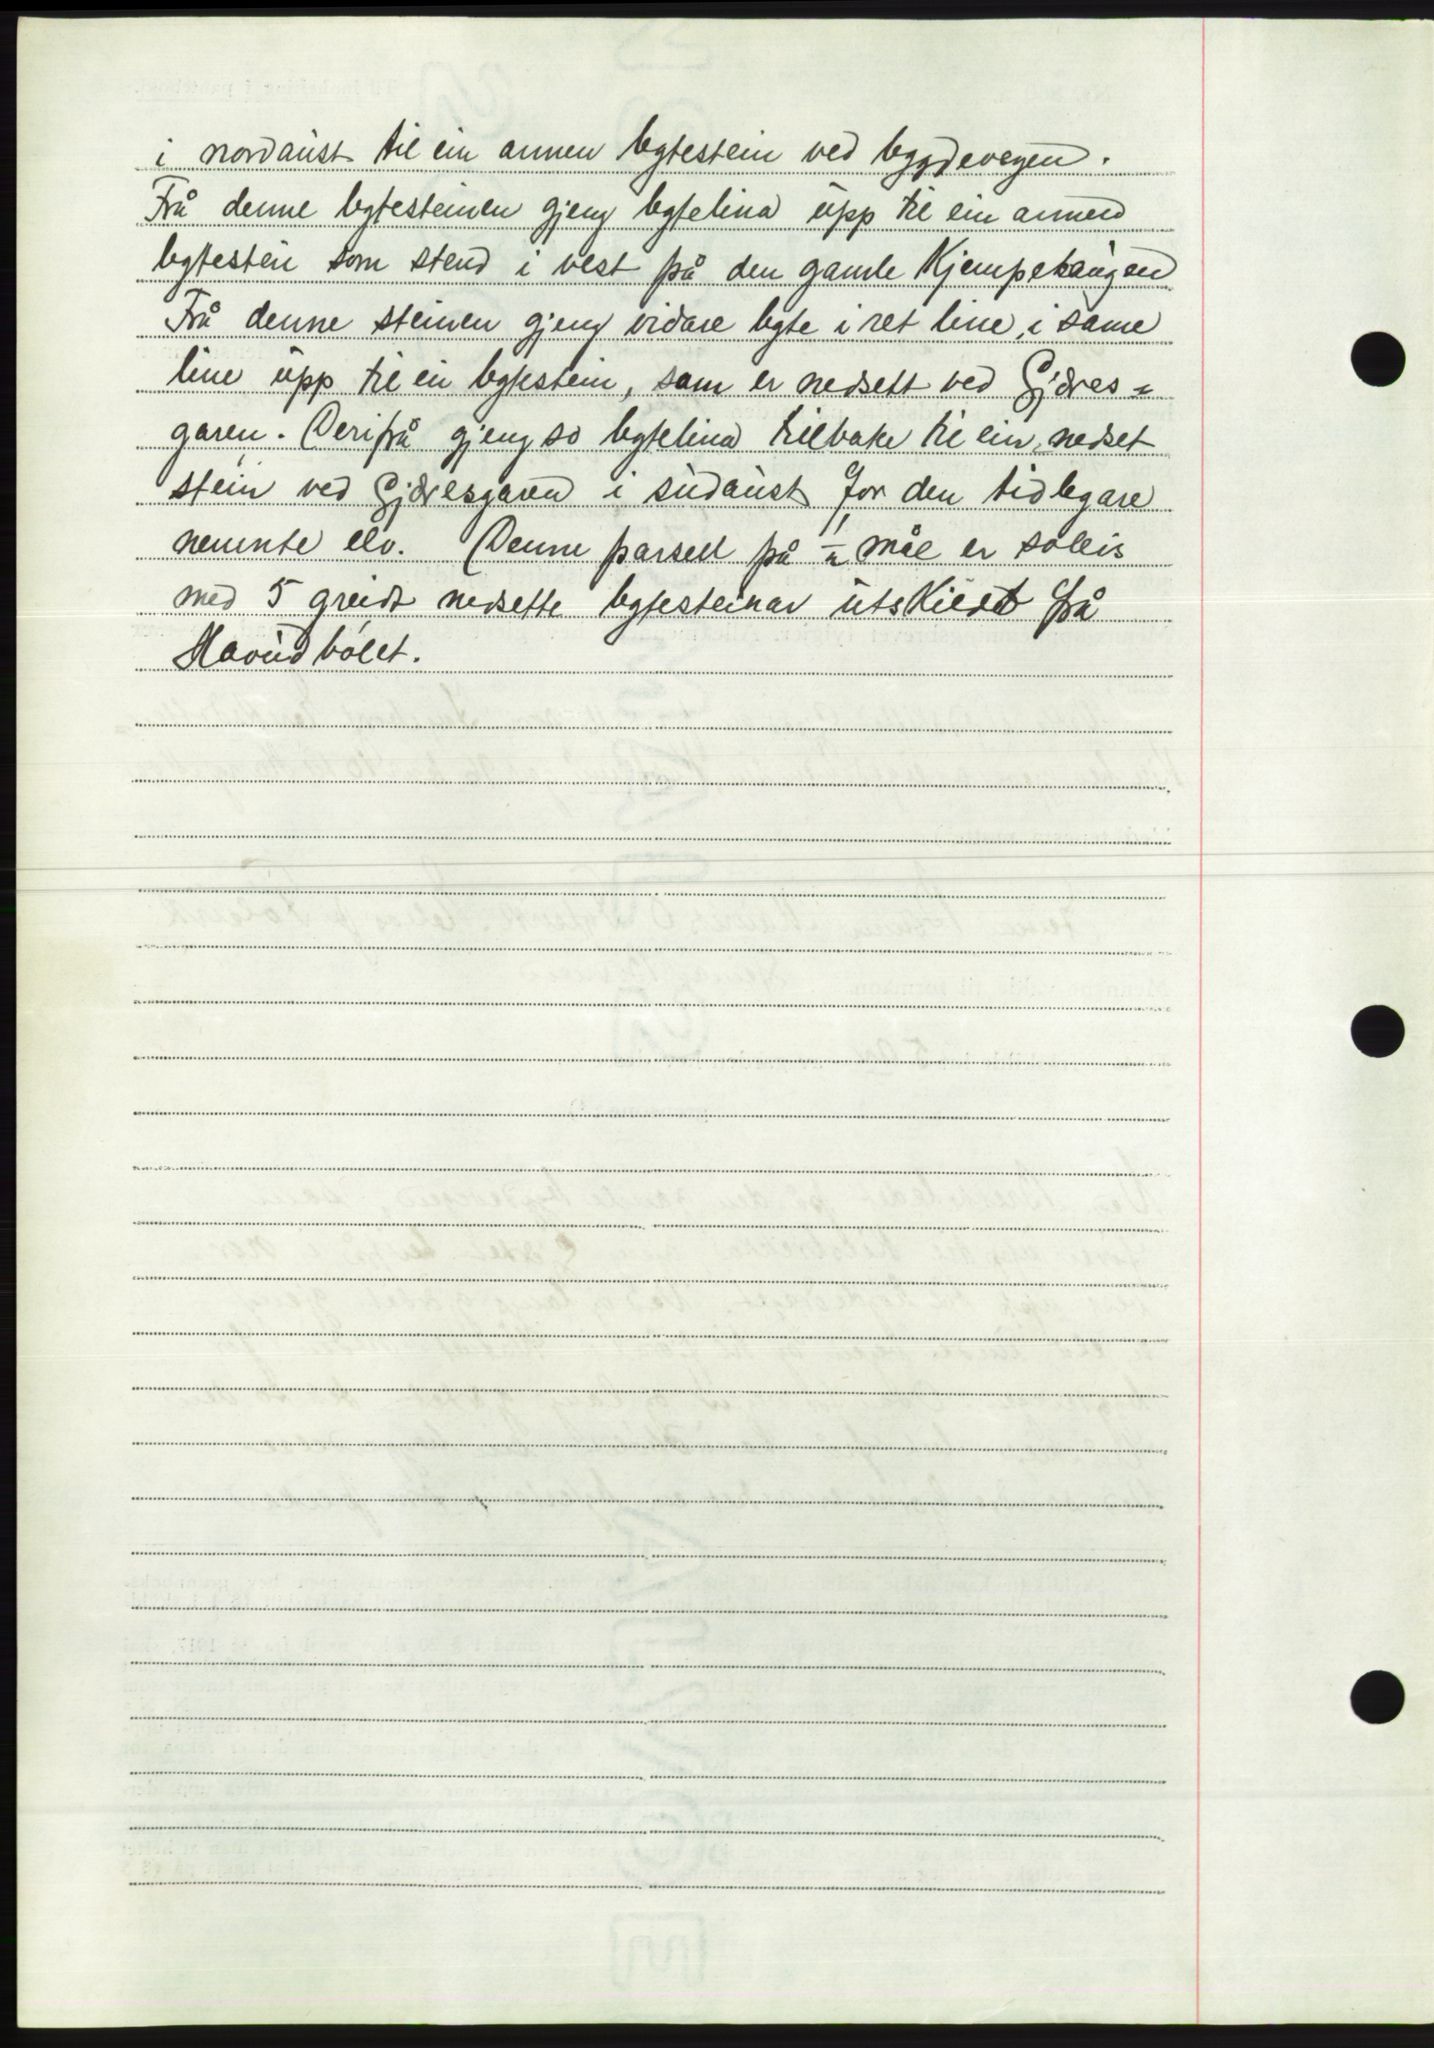 i nordaust til ein annen bytestein ved bygdevegen.
Frå denne bytesteinen gjeng bytelina upp til ein annen
bytestein som stend i vest på den gamle Kjempehaugen
Frå denne steinen gjeng vidare byte i ret line, i same
line upp til ein bytestein, som er nedsett ved Gjæres-
garen. Derifrå gjeng so bytelina tilbake til ein nedset
stein ved Gjæresgaren i sudaust for den tidlegare
nemnte elv. Denne parsell på mål er soleis
med 5 greidt nedsette bytesteinar utskiedt frå
Hovudbølet.